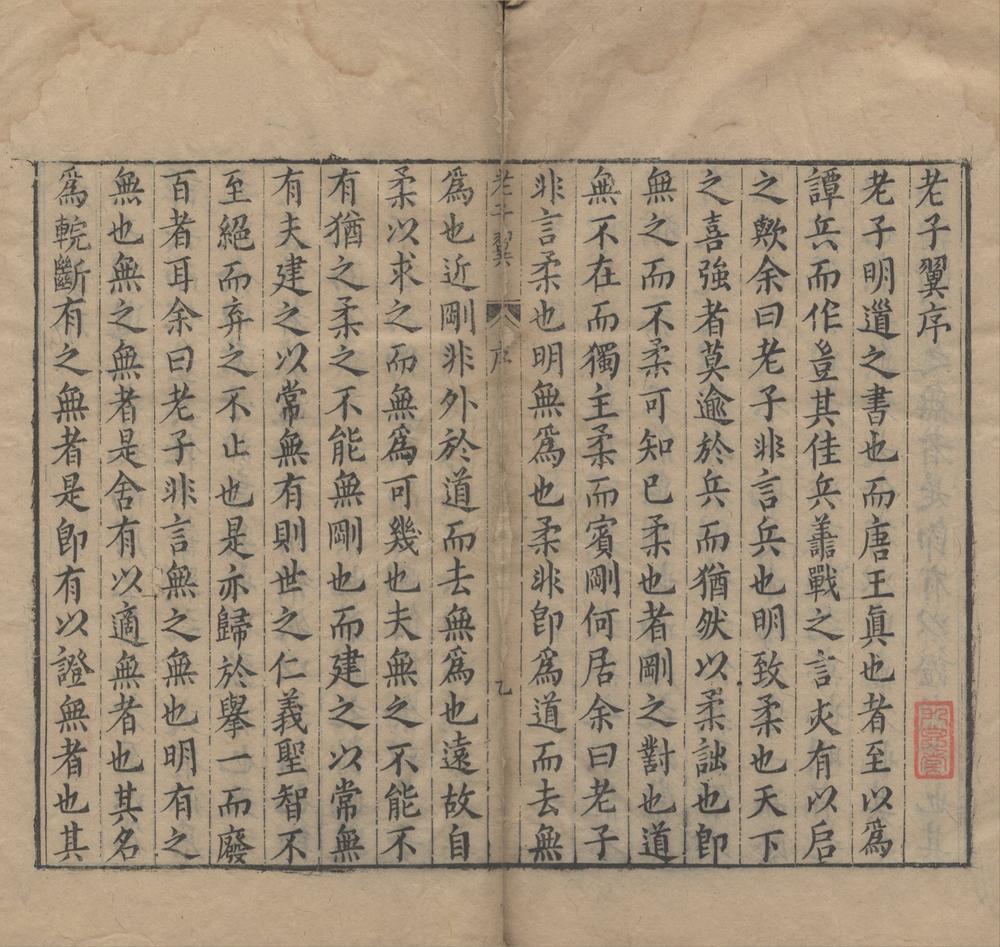 老子翼序
老子明道之書也而唐王眞也者至以爲
譚兵而作豈其佳兵善戰之言夾有以启
之歟余曰老子非言兵也明致柔也天下
之喜強者莫逾於兵而猶然以柔詘也卽
無之而不柔可知已柔也者剛之對也道
無不在而獨主柔而賓剛何居余曰老子
非言柔也明無爲也柔非卽爲道而去無
老子翼
序
乙
爲也近剛非外於道而去無爲也遠故自
柔以求之而無爲可幾也夫無之不能不
有猶之柔之不能無剛也而建之以常無
有夫建之以常無有則世之仁義聖智不
至絕而弃之不止也是亦歸於擧一而廢
百者耳余曰老子非言無之無也明有之
無也無之無者是舍有以適無者也其名
爲輐斷有之無者是卽有以證無者也其